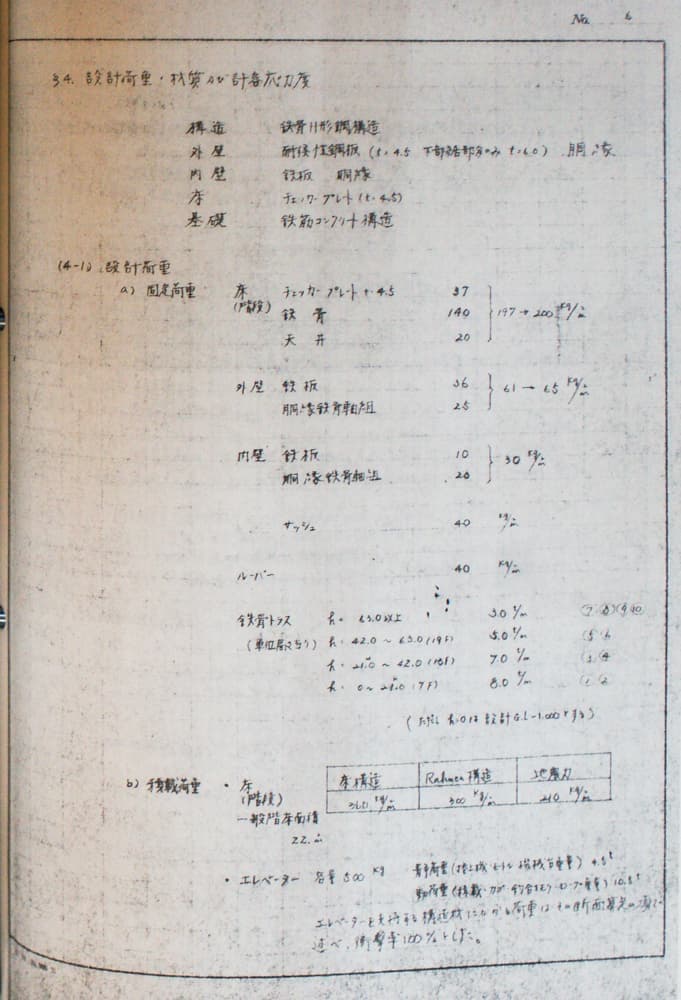 No. 6
§4. 設計荷重・材質及び許容応力度
構造 鉄骨H形鋼構造
外壁 耐候性鋼板 (t=4.5 下部 のみ t=6.0) 胴縁
内壁 鉄板 胴縁
床 チェッカープレート (t=4.5)
基礎 鉄筋コンクリート構造
(4-1) 設計荷重
a) 固定荷重 床 チェッカープレート t=4.5 37
(階段) 鉄骨 140 197→200 kg/㎡
天井 20
外壁 鉄板 36 61→65 kg/㎡
胴縁鉄骨軸組 25
内壁 鉄板 10 30 kg/㎡
胴縁鉄骨軸組 20
サッシュ 40 kg/㎡
ルーバー 40 kg/㎡
鉄骨トラス h= 63.0以上 3.0 t/m ⑦⑧⑨⑩
(単位層当り) h= 42.0 ~ 63.0 (19F) 5.0 t/m ⑤⑥
h= 21.0 ~ 42.0 7.0 t/m ③④
h= 0 ~ 21.0 (7F) 8.0 t/m ①②
(ただし h=0は設計G.L-1.000とする)
b) 積載荷重 ・床 床構造 Rahmen構造 地震力
(階段) 360 kg/㎡ 300 kg/㎡ 210 kg/㎡
一般階床面積
22. ㎡
・エレベーター 容量 500 kg 静荷重 (捲上機 機械台重量) 4.5t
動荷重 (積載 カゴ 釣合オモリ ロープ重量) 10.5t
エレベーターを支持する構造材にかかる荷重はその断面算定の項で
述べ、衝撃率100%とした。